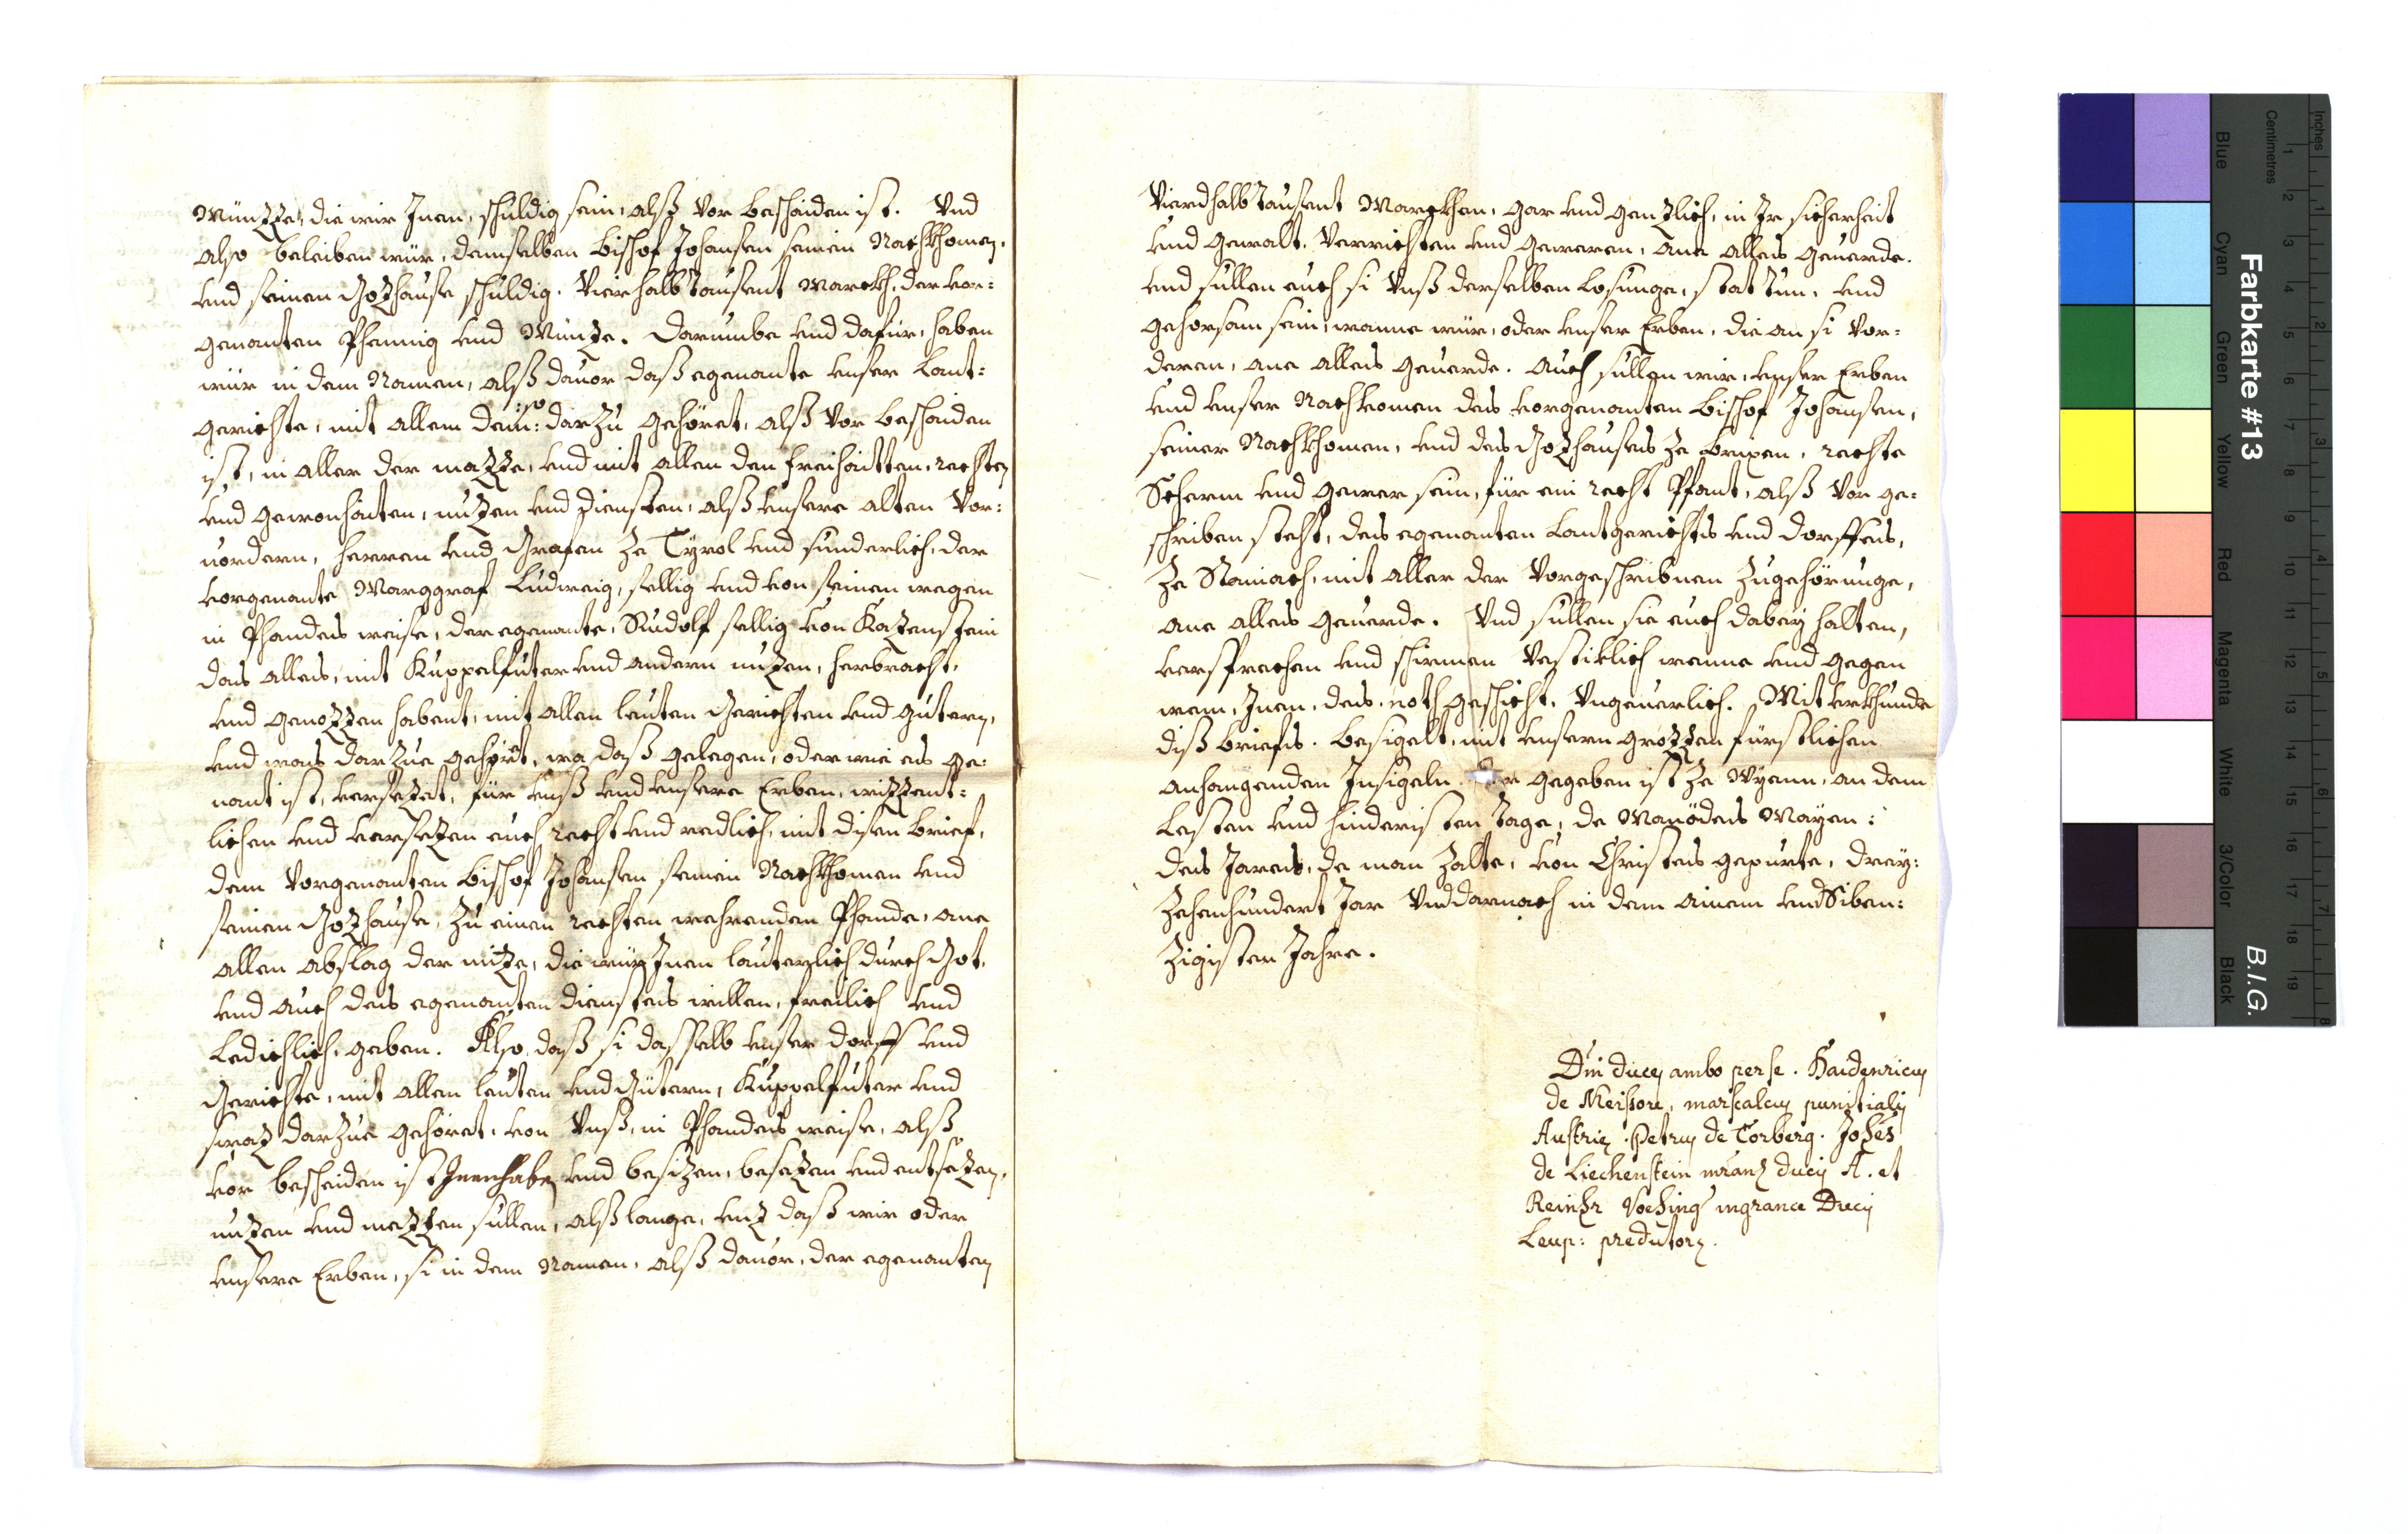 Münzze, die wir Inen, schuldig sein, alß vor beschaiden ist. Vnd
also beleiben wür, demselben Bischof Johansen seinen Nachkhomen,
vnd seinen Gozhause schuldig. Vierhalb tausent Marckh, der vor:
genanten Phennig vnd Münze. Darumbe vnd dafür, haben
wür in dem Namen, alß dauor daß egenante vnser Lant:
gerichte, mit allem dem :so: darzu gehöret, alß vor beschaiden
ist, in aller der mazze, vnd mit allen den freihaitten, rechten
vnd gewonhaiten, nuzen vnd diensten, alß vnsere alten Vor:
uordern, herren vnd Grafen ze Tyrol vnd sunderlich, der
vorgenante Marggraf Ludweig, sellig vnd von seinen wegen
in Phandes weise, der egenante, Rudolf sellig von Kazenstein
das alles, mit Kuppelfuter vnd andern nuzen, herbracht,
vnd genozzen habent, mit allen leuten Gerichten vnd gütern,
vnd was darzue gehört, wa daß gelegen, oder wie es ge:
nant ist, versezet, für vnß vnd vnsere Erben, wizzent:
lichen vnd versezen auch, recht vnd redlich, mit disen brief,
dem Vorgenanten Bischof Johansen seinen Nachkhomen vnd
seinen Gozhause, zu einen rechten wehrenden Phande, ane
allen abslag der nüze, die wür Inen lauterlich durch Got,
vnd auch des egenanten dienstes willen, freilich vnd
Ledichlich, geben. Also, daß si dasselb vnser dorff vnd
Gerichte, mit allen leuten vnd Gütern, Kuppelfuter vnd
swaz darzue gehöret, von Vnß, in Phandes weise, alß
vor bescheiden ist Innenhaben vnd besizen, besezen vnd entsezen,
nuzen vnd niezzen sullen, alß lange, vnz daß wir oder
vnsere Erben, si in dem Namen, alß dauor, der egenanten
Vierdhalb tausent Marckhen, gar vnd genzlich, in Ir sicherheit
vnd gewalt. Verrichten vnd geweren, ane alles geuerde.
vnd sullen auch si Vnß derselben Losunge, statt tun, vnd
gehorsam sein, wanne wür, oder vnser Erben, die an si vor:
deren, ane alles geuerde. Auch sullen wir, vnser Erben
vnd vnser Nachkomen des vorgenanten Bischof Johansen,
seiner Nachkhomen, vnd des Gozhauses ze Brixen, rechte
Scherm vnd gewer sein, für ein recht Pfant, alß vor ge:
schriben steht, des egenanten Lantgerichts vnd dorffes,
ze Stainach, mit aller der vorgeschribnen zugehörunge,
ane alles geuerde. Vnd sullen sie auch dabey halten,
versprechen vnd schirmen vestiklich wanne vnd gegen
wem, Inen, des noth geschicht, Vngeuerlich. Mit vrkhunde
diß briefs. Besigelt, mit vnsern grozzen fürstlichen
anhangenden Insigeln. Der gegeben ist ze Wyenn, an dem
Lesten vnd hindristen Tage, de Manödes Mayen:
des Jares, da man zalte, von Christes gepurte, drey:
zehenhundert Jar Vnd darnach in dem ainem vnd Siben:
zigisten Jahre.
Dni duces ambo per se. Haidenricus
de Meissore, marscalcus puncialis
Austrie. Petrus de Torberg. Johes
de Liechenstein mranz ducis A. et
Reinhr Voehing mgrance Ducis
Leup: predutorz.